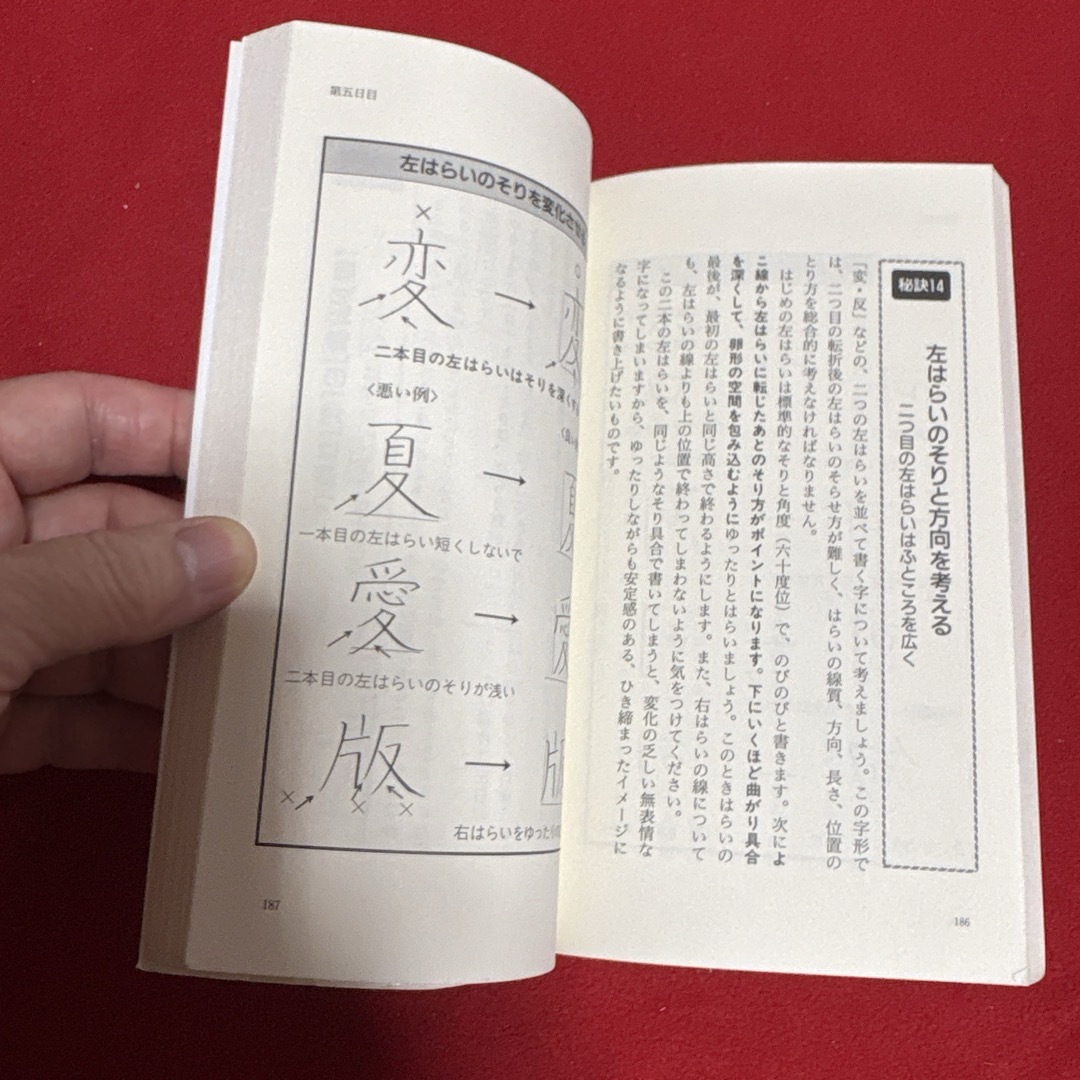 秘訣14
左はらいのそりと方向を考える
二つ目の左はらいはふところを広く
「変・反」などの、二つの左はらいを並べて書く字について考えましょう。この字形で
は、二つ目の転折後の左はらいのそらせ方が難しく、はらいの線質、方向、長さ、位置の
とり方を総合的に考えなければなりません。
はじめの左はらいは標準的なそりと角度(六十度位)で、のびのびと書きます。次によ
こ線から左はらいに転じたあとのそり方がポイントになります。下にいくほど曲がり具合
を深くして、卵形の空間を包み込むようにゆったりとはらいましょう。このときはらいの
最後が、最初の左はらいと同じ高さで終わるようにします。また、右はらいの線について
も、左はらいの線よりも上の位置で終わってしまわないように気をつけてください。
この二本の左はらいを、同じようなそり具合で書いてしまうと、変化の乏しい無表情な
字になってしまいますから、ゆったりしながらも安定感のある、ひき締まったイメージに
なるように書き上げたいものです。
186
第五日目
左はらいのそりを変化させ
×
変 →
二本目の左はらいはそりを深くす
〈悪い例〉
夏 →
一本目の左はらい短くしないで
愛 →
二本目の左はらいのそりが浅い
版 →
× × ×
右はらいをゆった
187